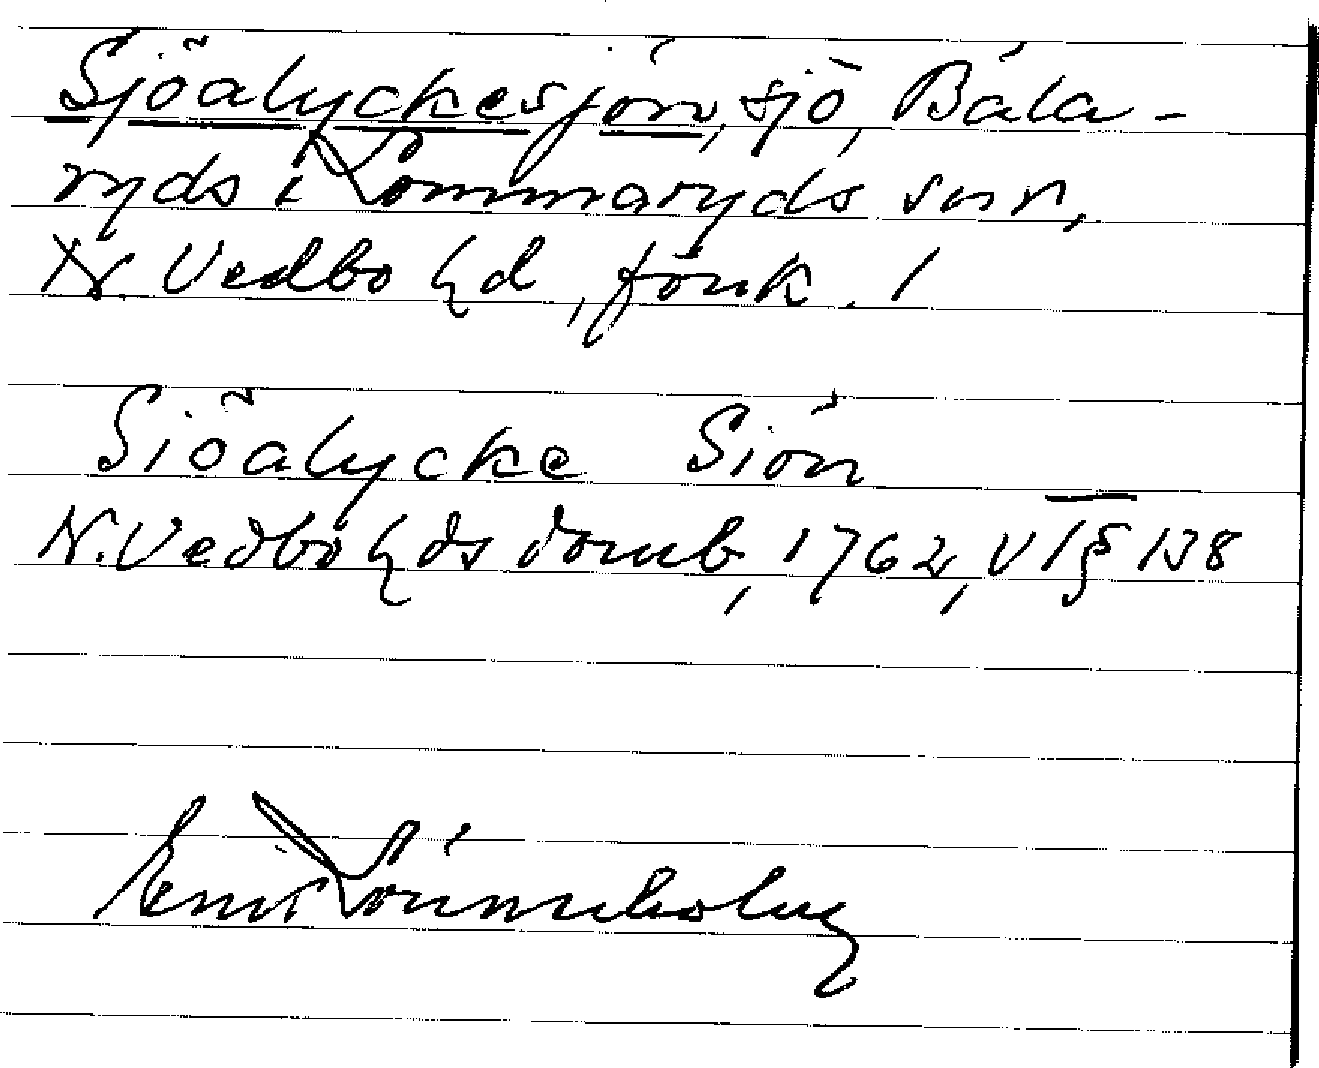 Sjöalyckesjön, sjö, Bäla-
ryds i Lommaryds snr,
N Vedbo hd, Jönk. l
Siöalycke Siön
N. Vedbo hds domb, 1762, V 1 § 138
Emil Lönnerholm